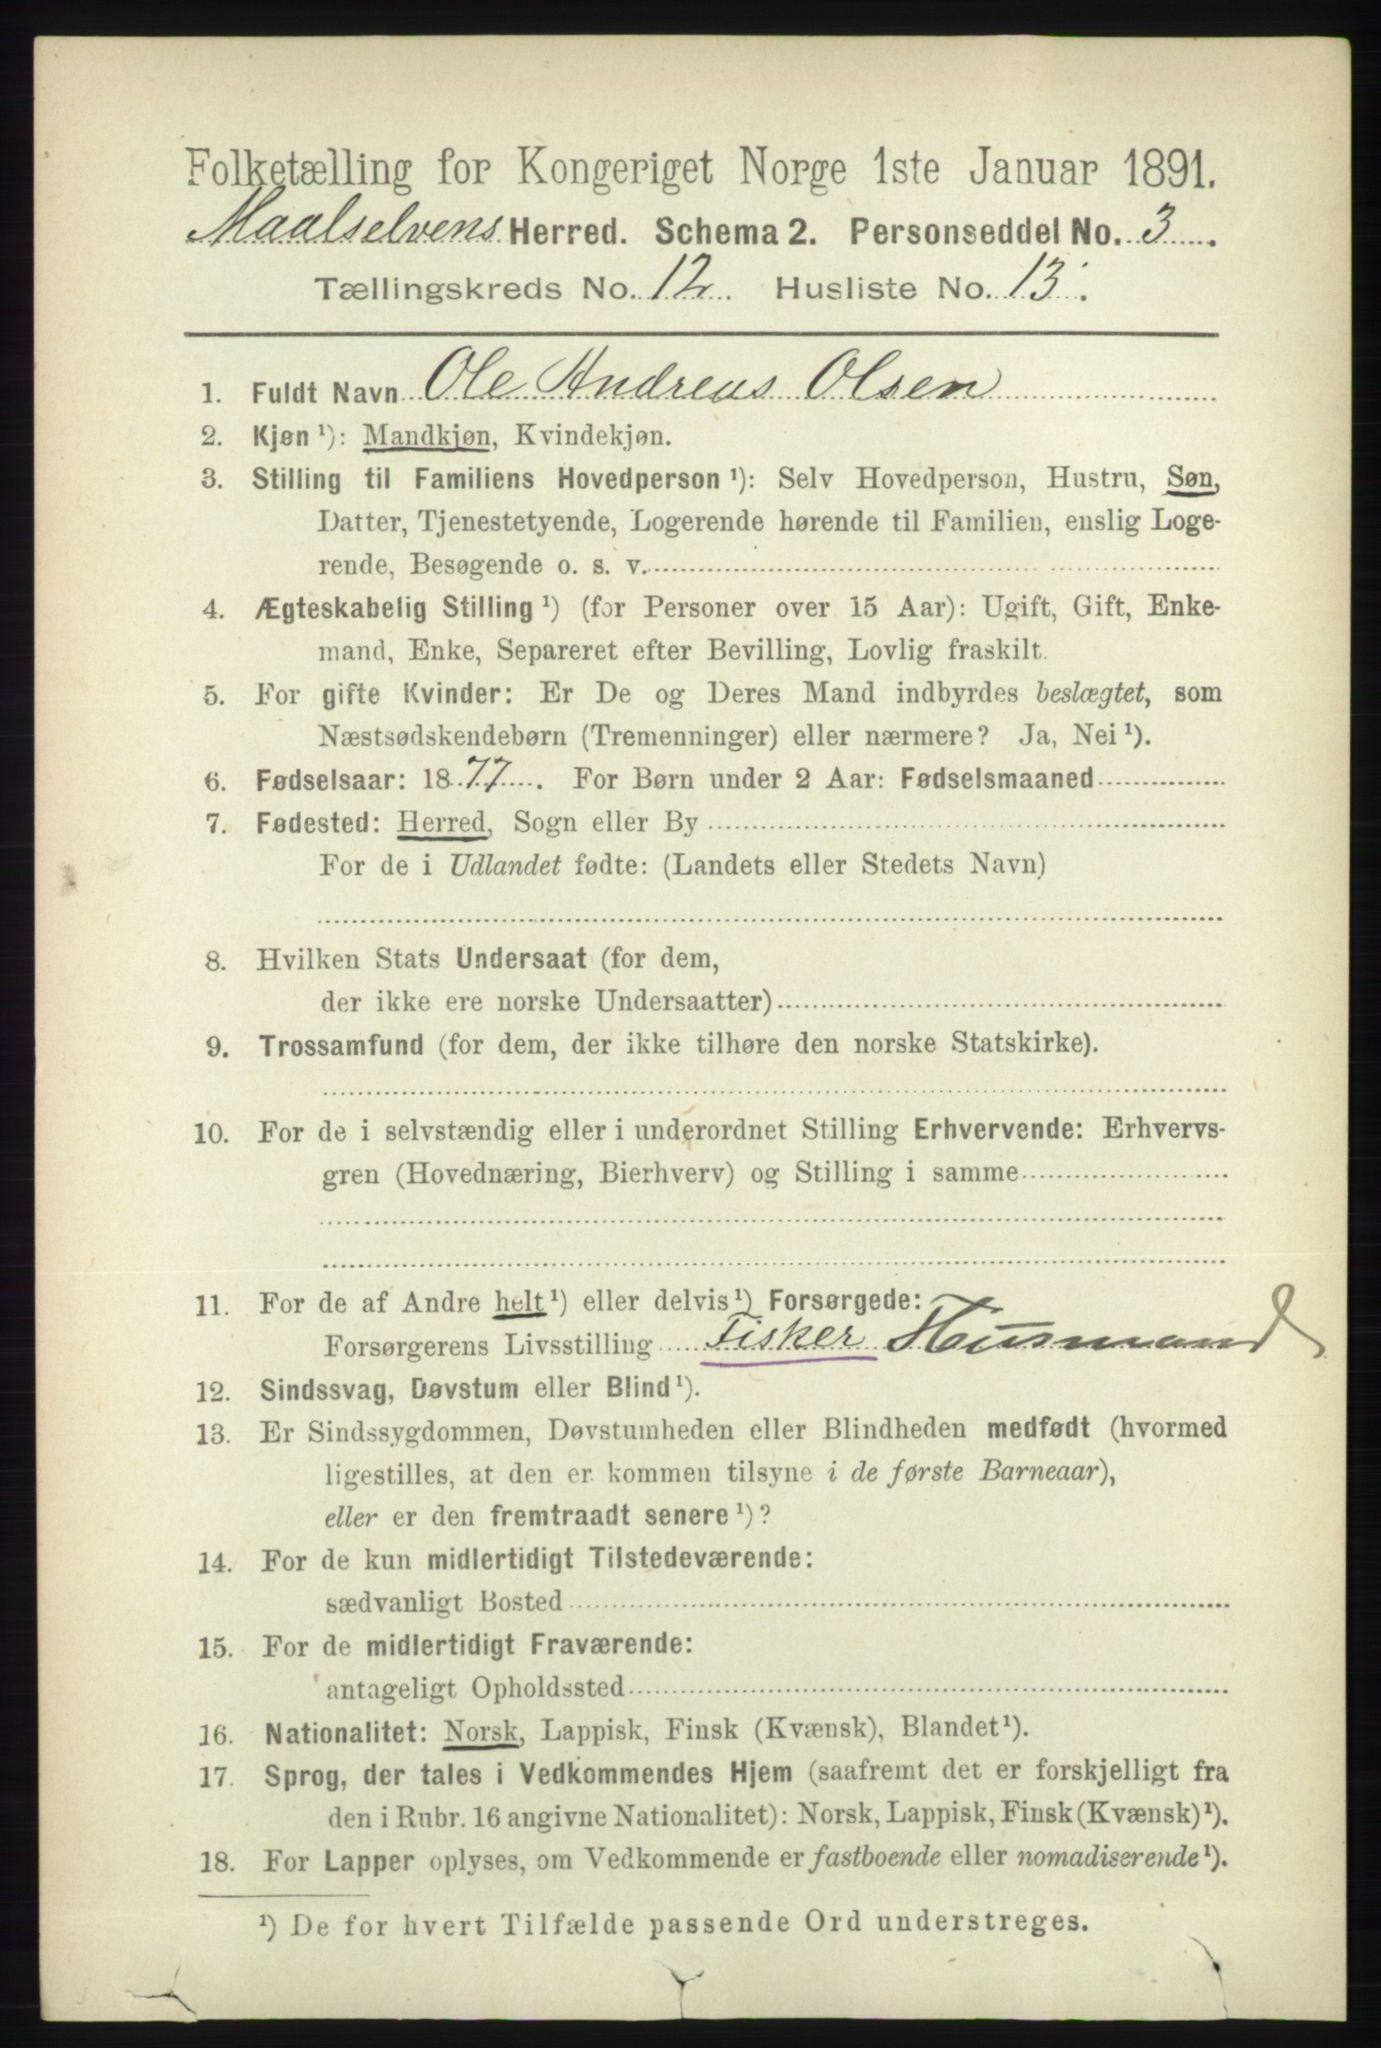 Folketælling for Kongeriget Norge 1ste Januar 1891.
Maalselvens Herred. Schema 2. Personseddel No. 3.
Tællingskreds No. 12. Husliste No. 13.
1. Fuldt Navn Ole Andreas Olsen
2. Kjøn ¹): Mandkjøn, Kvindekjøn.
3. Stilling til Familiens Hovedperson ¹): Selv Hovedperson, Hustru, Søn,
Datter, Tjenestetyende, Logerende hørende til Familien, enslig Loge-
rende, Besøgende o. s. v.
4. Ægteskabelig Stilling ¹) (for Personer over 15 Aar): Ugift, Gift, Enke-
mand, Enke, Separeret efter Bevilling, Lovlig fraskilt.
5. For gifte Kvinder: Er De og Deres Mand indbyrdes beslægtet, som
Næstsødskendebørn (Tremenninger) eller nærmere? Ja, Nei ¹).
6. Fødselsaar: 1877. For Børn under 2 Aar: Fødselsmaaned
7. Fødested: Herred, Sogn eller By
For de i Udlandet fødte: (Landets eller Stedets Navn)
8. Hvilken Stats Undersaat (for dem,
der ikke ere norske Undersaatter)
9. Trossamfund (for dem, der ikke tilhøre den norske Statskirke).
10. For de i selvstændig eller i underordnet Stilling Erhvervende: Erhvervs-
gren (Hovednæring, Bierhverv) og Stilling i samme
11. For de af Andre helt ¹) eller delvis ¹) Forsørgede:
Forsørgerens Livsstilling Fisker Husmand
12. Sindssvag, Døvstum eller Blind ¹).
13. Er Sindssygdommen, Døvstumheden eller Blindheden medfødt (hvormed
ligestilles, at den er kommen tilsyne i de første Barneaar),
eller er den fremtraadt senere ¹)?
14. For de kun midlertidigt Tilstedeværende:
sædvanligt Bosted
15. For de midlertidigt Fraværende:
antageligt Opholdssted
16. Nationalitet: Norsk, Lappisk, Finsk (Kvænsk), Blandet ¹).
17. Sprog, der tales i Vedkommendes Hjem (saafremt det er forskjelligt fra
den i Rubr. 16 angivne Nationalitet): Norsk, Lappisk, Finsk (Kvænsk) ¹).
18. For Lapper oplyses, om Vedkommende er fastboende eller nomadiserende ¹).
¹) De for hvert Tilfælde passende Ord understreges.